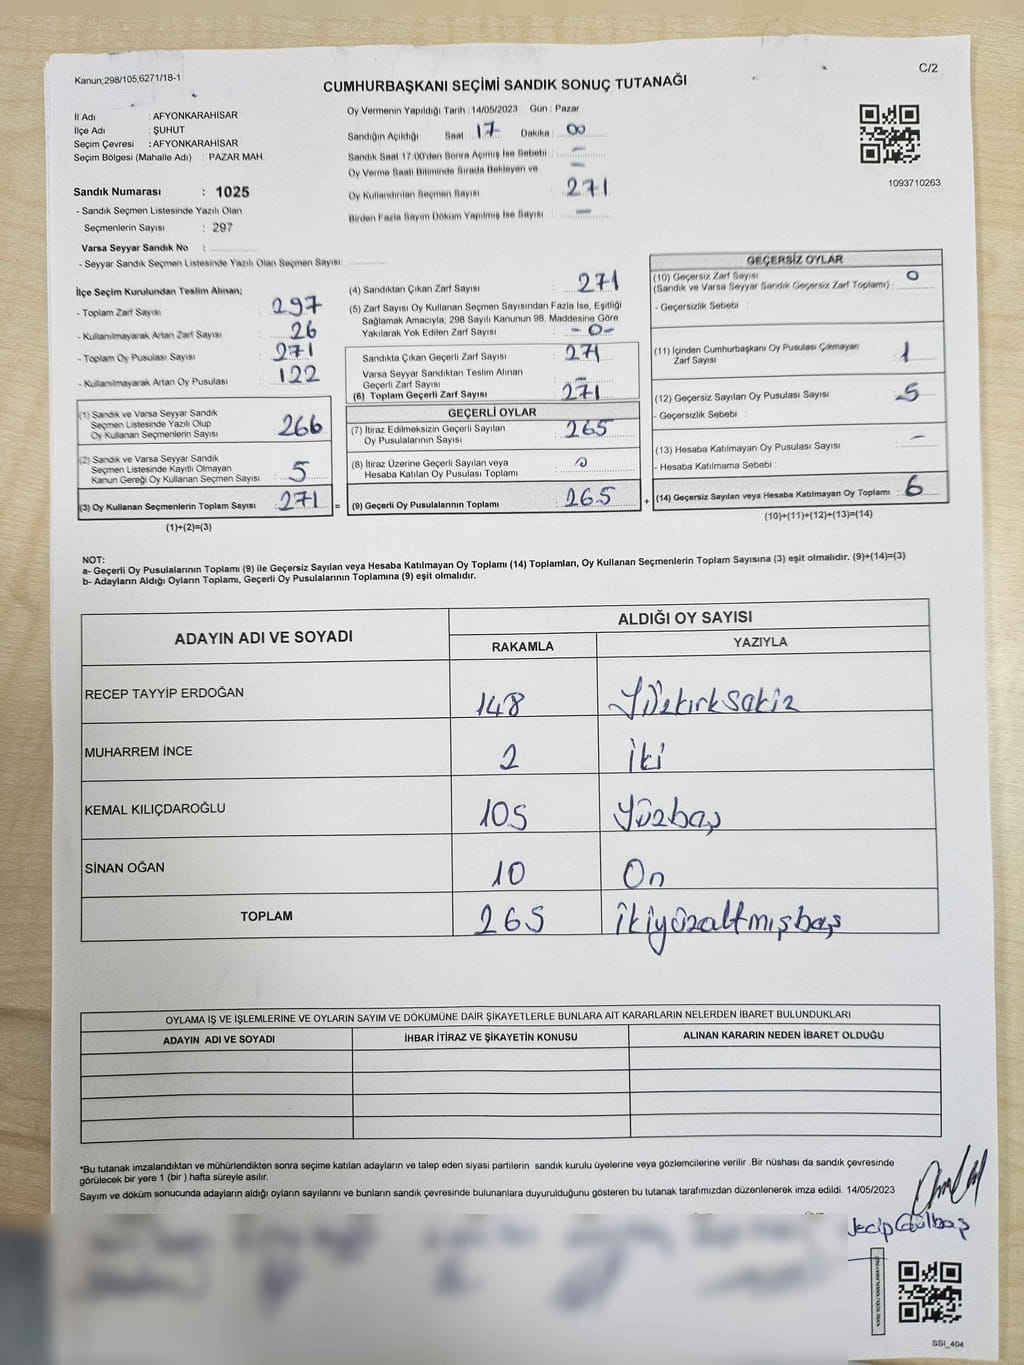 Kanun;298/105;6271/18-1
C/2
CUMHURBAŞKANI SEÇİMİ SANDIK SONUÇ TUTANAĞI
İl Adı : AFYONKARAHİSAR
İlçe Adı : ŞUHUT
Seçim Çevresi : AFYONKARAHİSAR
Seçim Bölgesi (Mahalle Adı) : PAZAR MAH.
Sandık Numarası : 1025
- Sandık Seçmen Listesinde Yazılı Olan
Seçmenlerin Sayısı : 297
Varsa Seyyar Sandık No :
- Seyyar Sandık Seçmen Listesinde Yazılı Olan Seçmen Sayısı:
Oy Vermenin Yapıldığı Tarih : 14/05/2023 Gün : Pazar
Sandığın Açıldığı Saat : 17 Dakika : 00
Sandık Saat 17:00'den Sonra Açımış İse Sebebi : -
Oy Verme Saati Bitiminde Sırada Bekleyen ve -
Oy Kullandırılan Seçmen Sayısı : 271
Birden Fazla Sayım Döküm Yapılmış İse Sayısı : -
1093710263
İlçe Seçim Kurulundan Teslim Alınan;
- Toplam Zarf Sayısı : 297
- Kullanılmayarak Artan Zarf Sayısı : 26
- Toplam Oy Pusulası Sayısı : 271
- Kullanılmayarak Artan Oy Pusulası : 122
(1) Sandık ve Varsa Seyyar Sandık
Seçmen Listesinde Yazılı Olup
Oy Kullanan Seçmenlerin Sayısı : 266
(2) Sandık ve Varsa Seyyar Sandık
Seçmen Listesinde Kayıtlı Olmayan
Kanun Gereği Oy Kullanan Seçmen Sayısı : 5
(3) Oy Kullanan Seçmenlerin Toplam Sayısı : 271 =
(1)+(2)=(3)
(4) Sandıktan Çıkan Zarf Sayısı : 271
(5) Zarf Sayısı Oy Kullanan Seçmen Sayısından Fazla İse, Eşitliği
Sağlamak Amacıyla; 298 Sayılı Kanunun 98. Maddesine Göre
Yakılarak Yok Edilen Zarf Sayısı : -0-
Sandıkta Çıkan Geçerli Zarf Sayısı : 271
Varsa Seyyar Sandıktan Teslim Alınan
Geçerli Zarf Sayısı : -
(6) Toplam Geçerli Zarf Sayısı : 271
GEÇERLİ OYLAR
(7) İtiraz Edilmeksizin Geçerli Sayılan
Oy Pusulalarının Sayısı : 265
(8) İtiraz Üzerine Geçerli Sayılan veya
Hesaba Katılan Oy Pusulası Toplamı : 0
(9) Geçerli Oy Pusulalarının Toplamı : 265 +
GEÇERSİZ OYLAR
(10) Geçersiz Zarf Sayısı
(Sandık ve Varsa Seyyar Sandık Geçersiz Zarf Toplamı) : 0
- Geçersizlik Sebebi :
(11) İçinden Cumhurbaşkanı Oy Pusulası Çıkmayan
Zarf Sayısı : 1
(12) Geçersiz Sayılan Oy Pusulası Sayısı : 5
- Geçersizlik Sebebi :
(13) Hesaba Katılmayan Oy Pusulası Sayısı : -
- Hesaba Katılmama Sebebi :
(14) Geçersiz Sayılan veya Hesaba Katılmayan Oy Toplamı : 6
(10)+(11)+(12)+(13)=(14)
NOT:
a- Geçerli Oy Pusulalarının Toplamı (9) ile Geçersiz Sayılan veya Hesaba Katılmayan Oy Toplamı (14) Toplamları, Oy Kullanan Seçmenlerin Toplam Sayısına (3) eşit olmalıdır. (9)+(14)=(3)
b- Adayların Aldığı Oyların Toplamı, Geçerli Oy Pusulalarının Toplamına (9) eşit olmalıdır.
ADAYIN ADI VE SOYADI ALDIĞI OY SAYISI
RAKAMLA YAZIYLA
RECEP TAYYİP ERDOĞAN 148 Yüzkırksekiz
MUHARREM İNCE 2 İki
KEMAL KILIÇDAROĞLU 105 Yüzbeş
SİNAN OĞAN 10 On
TOPLAM 265 ikiyüzaltmışbeş
OYLAMA İŞ VE İŞLEMLERİNE VE OYLARIN SAYIM VE DÖKÜMÜNE DAİR ŞİKAYETLERLE BUNLARA AİT KARARLARIN NELERDEN İBARET BULUNDUKLARI
ADAYIN ADI VE SOYADI İHBAR İTİRAZ VE ŞİKAYETİN KONUSU ALINAN KARARIN NEDEN İBARET OLDUĞU
*Bu tutanak imzalandıktan ve mühürlendikten sonra seçime katılan adayların ve talep eden siyasi partilerin sandık kurulu üyelerine veya gözlemcilerine verilir .Bir nüshası da sandık çevresinde
görülecek bir yere 1 (bir ) hafta süreyle asılır.
Sayım ve döküm sonucunda adayların aldığı oyların sayılarını ve bunların sandık çevresinde bulunanlara duyurulduğunu gösteren bu tutanak tarafımızdan düzenlenerek imza edildi. 14/05/2023
SSI_404